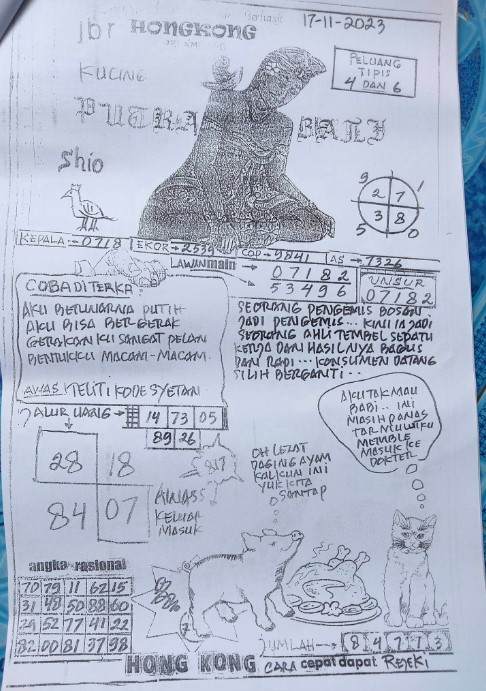 17-11-2023
jbr HONGKONG
KUCING
PELUANG
TIPIS
4 DAN 6
PUTRA BALI
Shio
9 1
2 7
3 8
5 0
KEPALA → 0718 EKOR → 2539 COP → 9841 AS → 7326
LAWAN main → 07182
53496
UNSUR
07182
COBA DITERKA :
AKU BERWARNA PUTIH
AKU BISA BERGERAK
GERAKAN KU SANGAT PELAN
BENTUKKU MACAM-MACAM.
AWAS TELITI KODE SYETAN
SEORANG PENGEMIS BOSAN
JADI PENGEMIS... KINI IA JADI
SEORANG AHLI TEMBEL SEPATU
KERJA DAN HASILNYA BAGUS
DAN RAPI ... KONSUMEN DATANG
SILIH BERGANTI...
JALUR UANG → 14 73 05
89 26
28 18
84 07
AWASS
KELUAR
MASUK
817
OH LEZAT
DAGING AYAM
KALKUN INI
YUK KITA
SANTAP
AKU TAK MAU
BABI.. INI
MASIH PANAS
TAR MULUTKU
MEMBLE
MASUK KE
DOKTER
angka rasional
70 79 11 62 15
31 48 50 88 60
29 52 77 41 22
82 00 81 37 98
JUMLAH → 8 4 7 7 3
HONG KONG CARA cepat dapat REJEKI